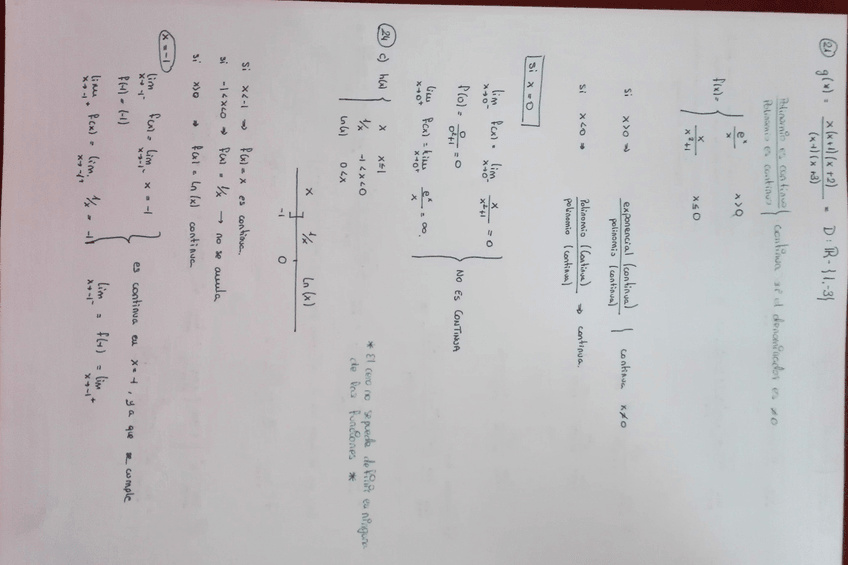 21) g(x) = x(x+1)(x+2) / (x-1)(x+3) = D: ℝ - {1,-3}
Polinomio es continuo / Polinomio es continuo } continua si el denominador es ≠0
f(x) = { e^x / x x>0
x / x²+1 x≤0
Si x>0 ⇒ exponencial (continua) / polinomio (continua) } continua x≠0
Si x<0 ⇒ Polinomio (continua) / polinomio (continua) ⇒ continua.
Si x=0
lim x→0⁻ f(x) = lim x→0⁻ x / x²+1 = 0
f(0) = 0 / 0²+1 = 0 } NO ES CONTINUA
lim x→0⁺ f(x) = lim x→0⁺ e^x / x = ∞.
24) c) h(x) { x x≤1
1/x -1<x<0
ln(x) 0<x
* El cero no se puede definir en ninguna
de las funciones *
x 1/x ln(x)
-1 0
Si x<-1 ⇒ f(x) = x es continua.
Si -1<x<0 ⇒ f(x) = 1/x → no se anula
Si x>0 ⇒ f(x) = ln(x) continua
x=-1
lim x→-1⁻ f(x) = lim x→-1⁻ x = -1
f(-1) = (-1) } es continua en x=-1, ya que se cumple
lim x→-1⁺ f(x) = lim x→-1⁺ 1/x = -1 lim x→-1⁻ = f(-1) = lim x→-1⁺